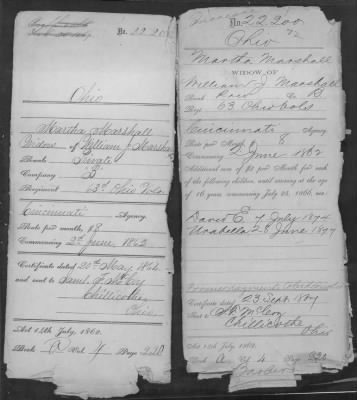 No. 22.200
Ohio
Martha Marshall
Widow of William J. Marshall
Rank Private
Company "B"
Regiment 63d Ohio Vols
Cincinnati Agency.
Rate per month, $8
Commencing 2d June, 1862
Certificate dated 20th May 1864
and sent to Saml. F. McCoy
Chillicothe
Ohio
Act 14th July, 1862.
Book A Vol. 4 Page 220
No. 22200
Ohio
Martha Marshall
WIDOW OF
William J. Marshall
Rank Co. B
Regt. 63 Ohio Vols
Cincinnati Agency
Rate per Month, 8
Commencing 2 June 1862
Additional sum of $2 per Month for each
of the following children, until arriving at the age
of 16 years, commencing July 25, 1866, viz:
David E. 7 July 1874
28 June 1877
Certificate dated 23 Sept.
Sent to McCoy
Chillicothe
Ohio
Act 14th July, 1862.
Book A Vol. 4 Page